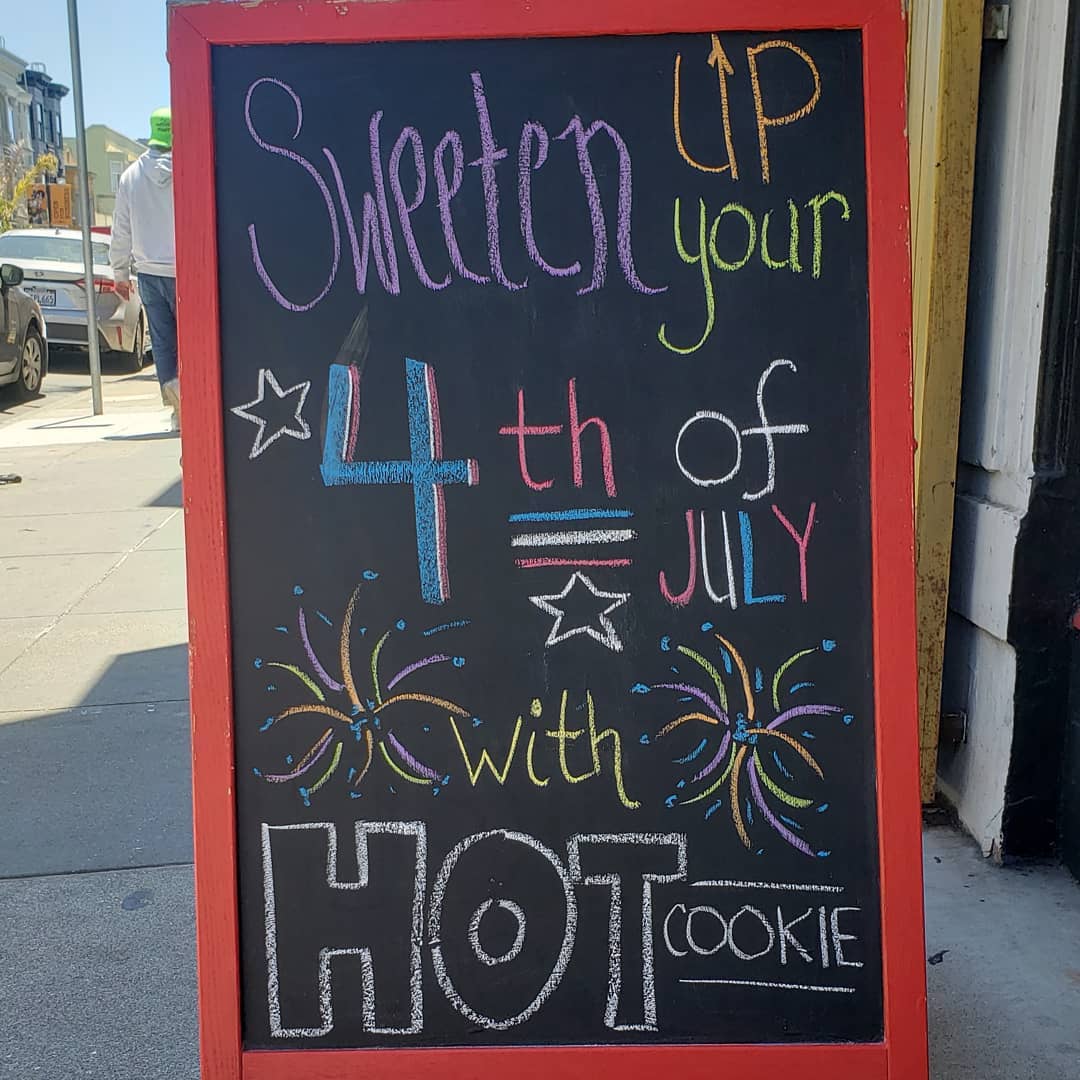 Sweeten UP
your
4th of
JULY
with
HOT COOKIE